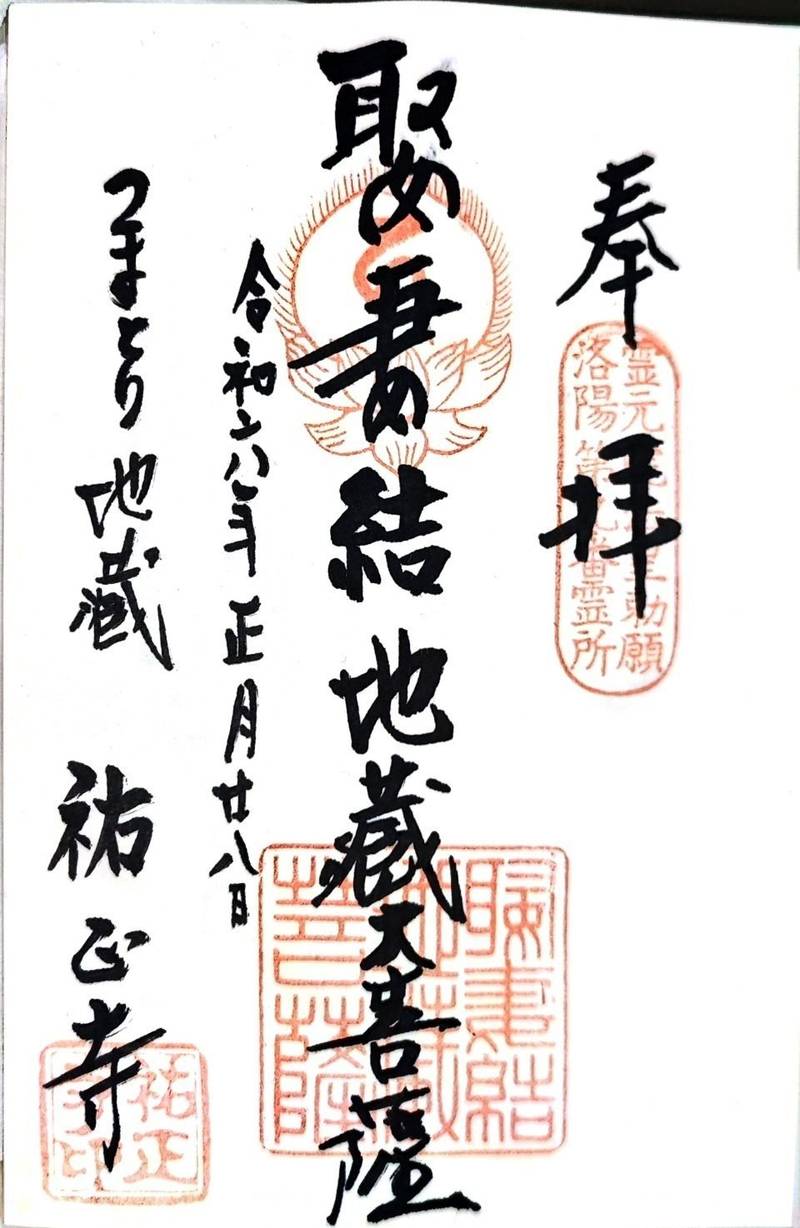 奉拝
霊元 皇勅願
洛陽第九番霊所
娶妻結地蔵大菩薩
令和六年正月廿八日
つまとり地蔵 祐正寺
祐正
寺印